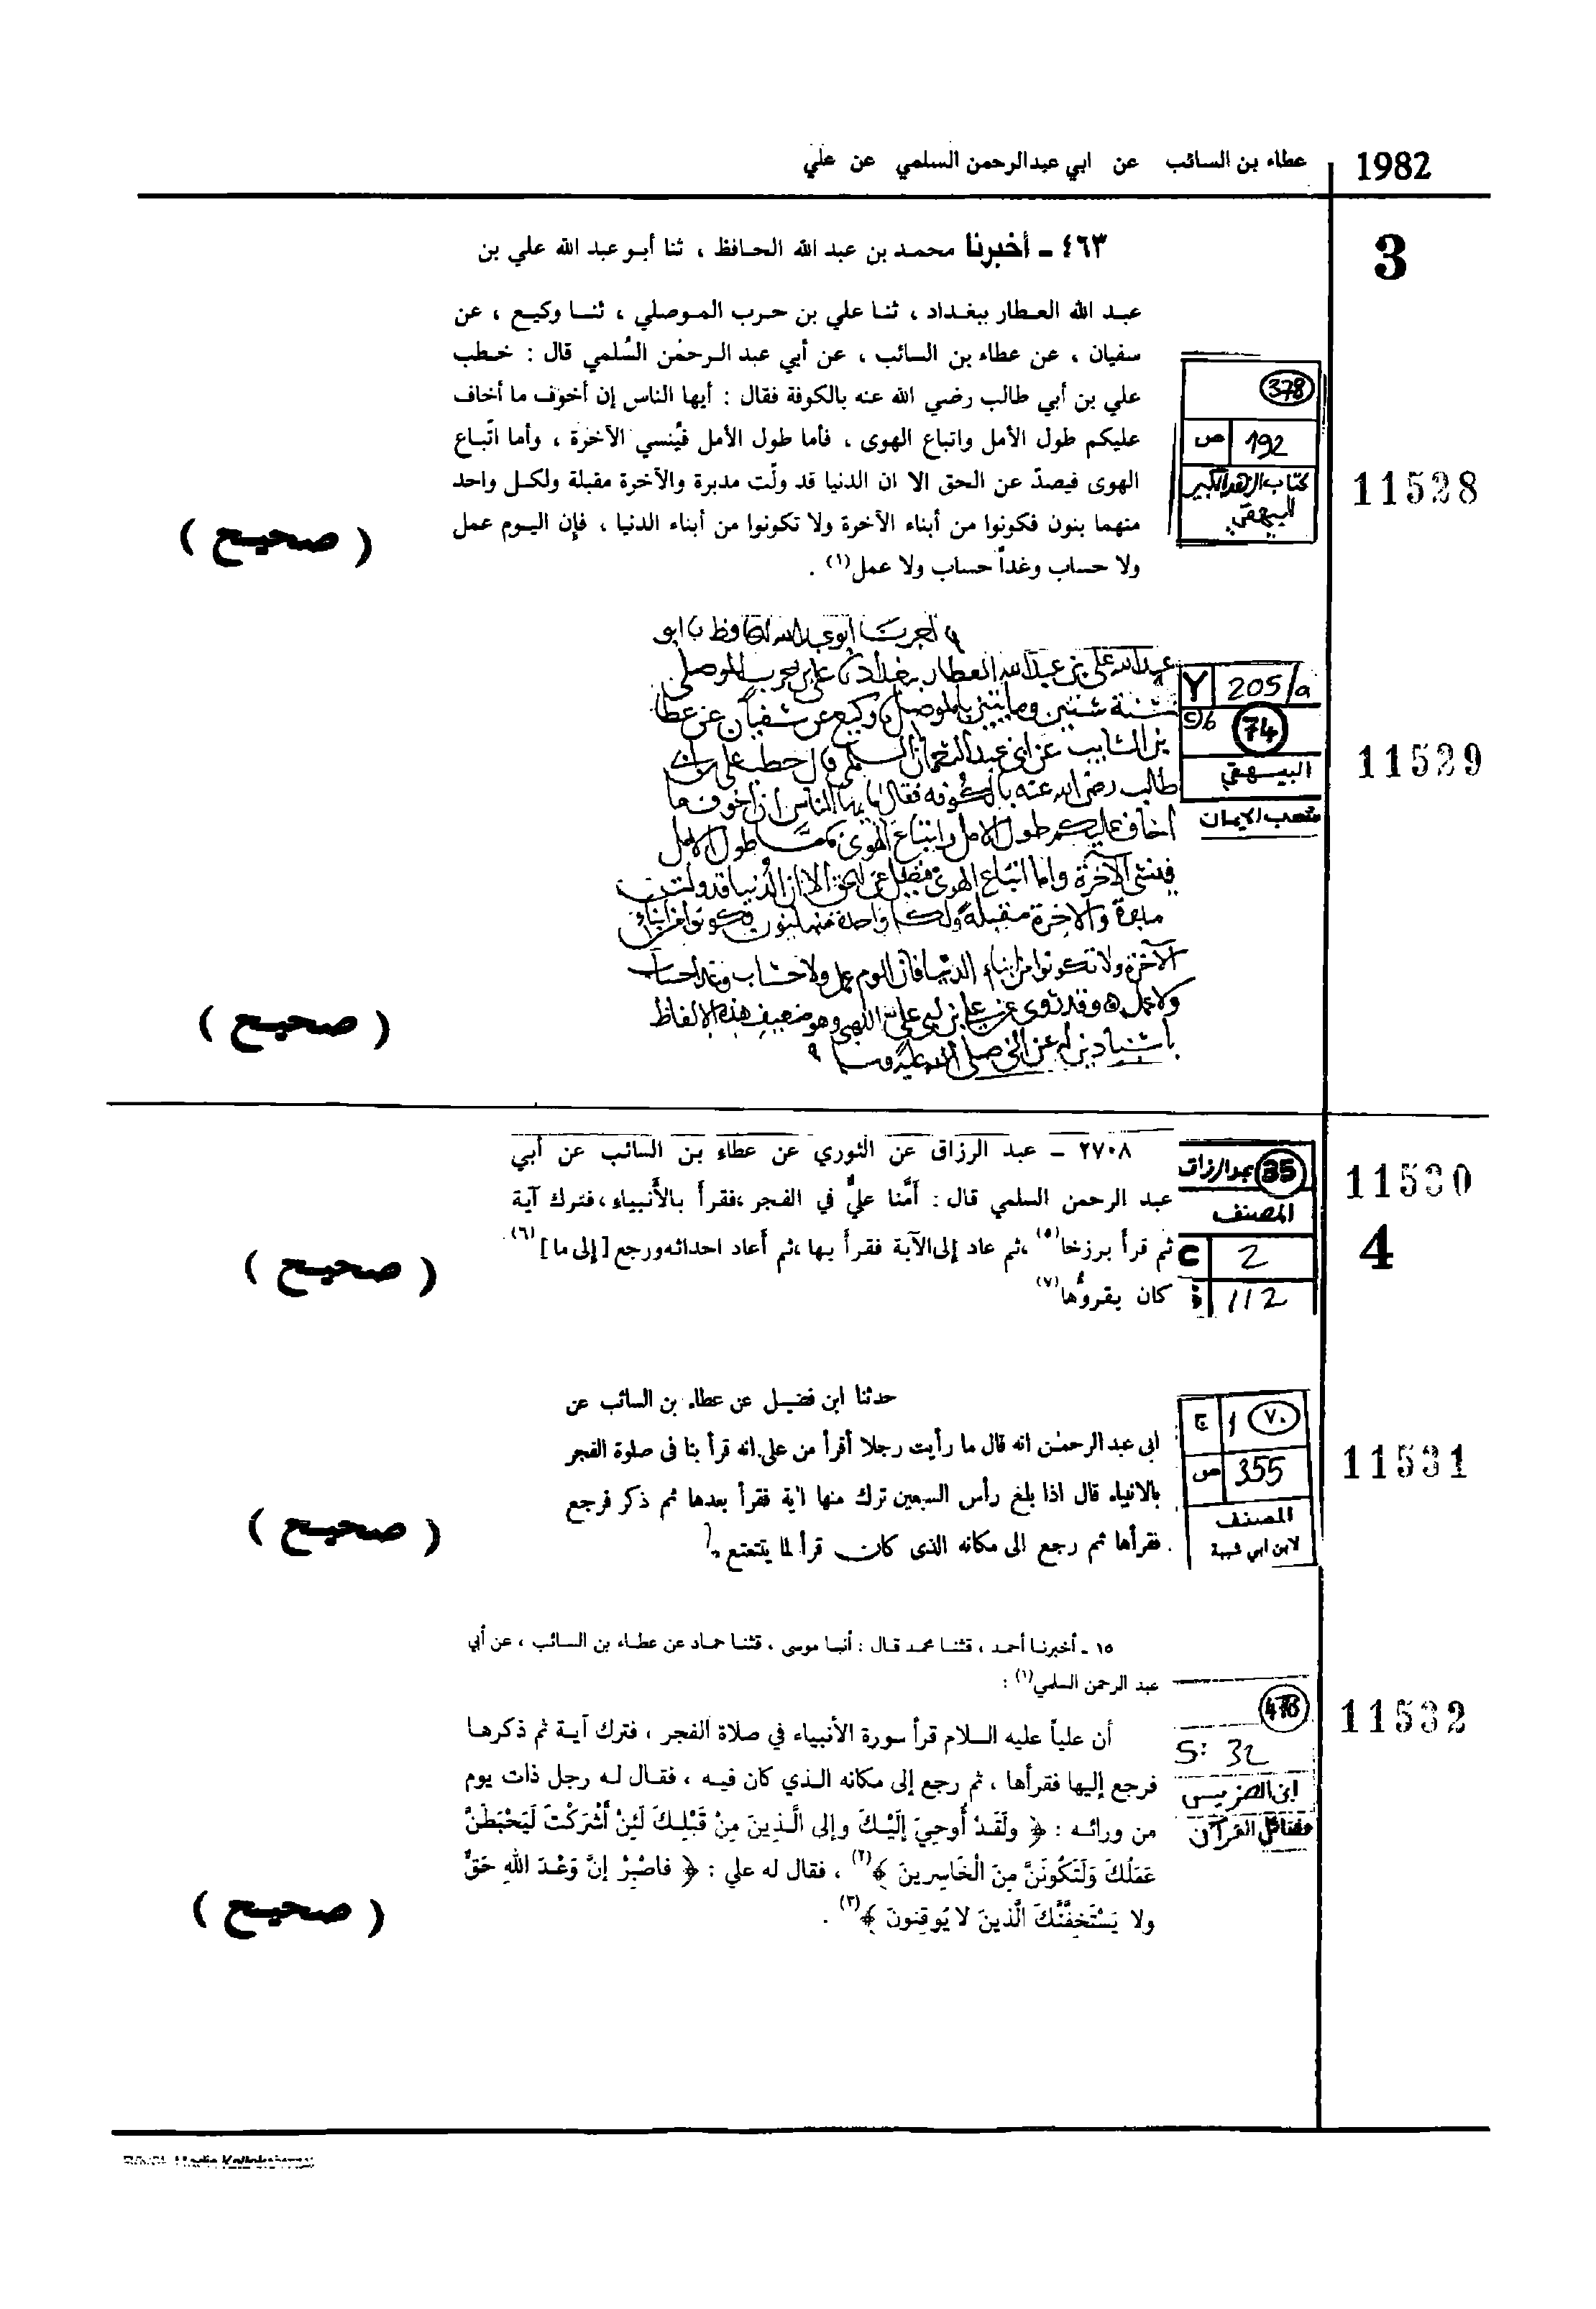 1982
عطاء بن السائب عن ابي عبدالرحمن السلمي عن علي
3
٤٦٣ - أخبرنا محمد بن عبد الله الحافظ ، ثنا أبو عبد الله علي بن
عبد الله العطار ببغداد ، ثنا علي بن حرب الموصلي ، ثنا وكيع ، عن
سفيان ، عن عطاء بن السائب ، عن أبي عبد الرحمٰن السُلمي قال : خطب
علي بن أبي طالب رضي الله عنه بالكوفة فقال : أيها الناس إن أخوف ما أخاف
عليكم طول الأمل واتباع الهوى ، فأما طول الأمل فيُنسي الآخرة ، وأما اتّباع
الهوى فيصدّ عن الحق الا ان الدنيا قد ولّت مدبرة والآخرة مقبلة ولكل واحد
منهما بنون فكونوا من أبناء الآخرة ولا تكونوا من أبناء الدنيا ، فإن اليوم عمل
ولا حساب وغداً حساب ولا عمل(١) .
378
ص 192
كتاب الزهد الكبير
البيهقي
11528
( صحيح )
اخبرنا ابو عبدالله الحافظ نا ابو
عبدالله علي بن عبدالله العطار ببغداد نا علي بن حرب الموصلي
سنة ستين ومايتين بالموصل نا وكيع عن سفيان عن عطا
بن السايب عن ابي عبدالرحمان السلمي قال خطب علي بن ابي
طالب رضي الله عنه بالكوفه فقال يا يها الناس ان اخوف ما
اخاف عليكم طول الامل واتباع الهوى فاما طول الامل
فينسي الآخرة واما اتباع الهوى فيضل عن الحق الا ان الدنيا قد ولت
مدبرة والاخرة مقبلة ولكل واحدة منهما بنون فكونوا من ابناء
الآخرة ولا تكونوا من ابناء الدنيا فان اليوم عمل ولا حساب وغدا حساب
ولا عمل وقد روي عن علي بن ابي علي اللهبي وهو ضعيف هذه الالفاظ
باسناد عن النبي صلى الله عليه وسلم
Y 205/a
74
البيهقي
شعب الإيمان
11529
( صحيح )
٢٧٠٨ - عبد الرزاق عن الثوري عن عطاء بن السائب عن أبي
عبد الرحمن السلمي قال : أَمَّنا عليٌّ في الفجر ،فقرأ بالأَنبياء ،فترك آية
ثم قرأ برزخا(٥) ،ثم عاد إلى الآية فقرأ بها ،ثم أعاد احداثه ورجع [إلى ما](٦)
كان يقروُها(٧)
35 عبدالرزاق
المصنف
C 2
112
11530
4
( صحيح )
حدثنا ابن فضيل عن عطاء بن السائب عن
ابى عبد الرحمٰن انه قال ما رأيت رجلا أقرأ من على انه قرأ بنا فى صلوة الفجر
بالانبياء قال اذا بلغ رأس السبعين ترك منها اٰية فقرأ بعدها ثم ذكر فرجع
فقرأها ثم رجع الى مكانه الذى كان قرأ لما يتتعتع .
٧٠ 1 ج
ص 355
المصنف
لابن ابي شيبة
11531
( صحيح )
١٥ - أخبرنا أحمد ، قثنا محمد قال : أنبا موسى ، قثنا حماد عن عطاء بن السائب ، عن أبي
عبد الرحمن السلمي(١) :
أن علياً عليه السلام قرأ سورة الأنبياء في صلاة الفجر ، فترك آية ثم ذكرها
فرجع إليها فقرأها ، ثم رجع إلى مكانه الذي كان فيه ، فقال له رجل ذات يوم
من ورائه : ﴿ ولَقَدْ أُوحِيَ إلَيْكَ وإلى الَّذِينَ مِنْ قَبْلِكَ لَئِنْ أَشْرَكْتَ لَيَحْبَطَنَّ
عَمَلُكَ وَلَتَكُونَنَّ مِنَ الْخَاسِرِينَ ﴾(٢) ، فقال له علي : ﴿ فاصْبِرْ إنَّ وَعْدَ اللهِ حَقٌّ
ولا يَسْتَخِفَّنَّكَ الَّذينَ لا يُوقِنونَ ﴾(٣) .
S: 32
ابن الضريس
فضائل القرآن
11532
( صحيح )